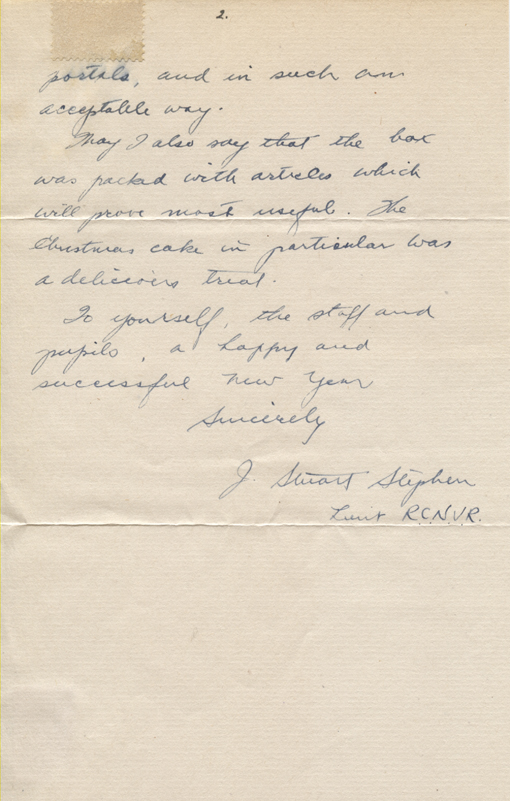 2.
postals, and in such an
acceptable way.
May I also say that the box
was packed with articles which
will prove most useful. The
Christmas cake in particular was
a delicious treat.
To yourself, the staff and
pupils, a happy and
successful New Year
Sincerely
J. Stuart Stephen
Lieut R.C.N.V.R.